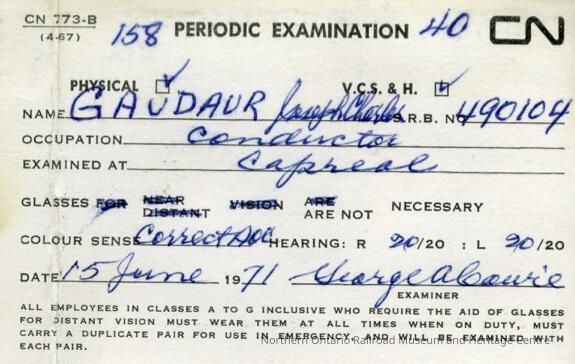 CN 773-B
(4-67)
158 PERIODIC EXAMINATION 40 CN
PHYSICAL ☑ V.C.S. & H. ☑
NAME GAUDAUR Joseph Charles S.R.B. NO 490104
OCCUPATION Conductor
EXAMINED AT Capreol
GLASSES FOR NEAR DISTANT VISION ARE ARE NOT NECESSARY
COLOUR SENSE Correct HEARING: R 20/20 : L 20/20
DATE 15 June 1971 George A Cowie
EXAMINER
ALL EMPLOYEES IN CLASSES A TO G INCLUSIVE WHO REQUIRE THE AID OF GLASSES
FOR DISTANT VISION MUST WEAR THEM AT ALL TIMES WHEN ON DUTY, MUST
CARRY A DUPLICATE PAIR FOR USE IN EMERGENCY, AND WILL BE EXAMINED WITH
EACH PAIR.
Northern Ontario Railroad Museum and Heritage Centre